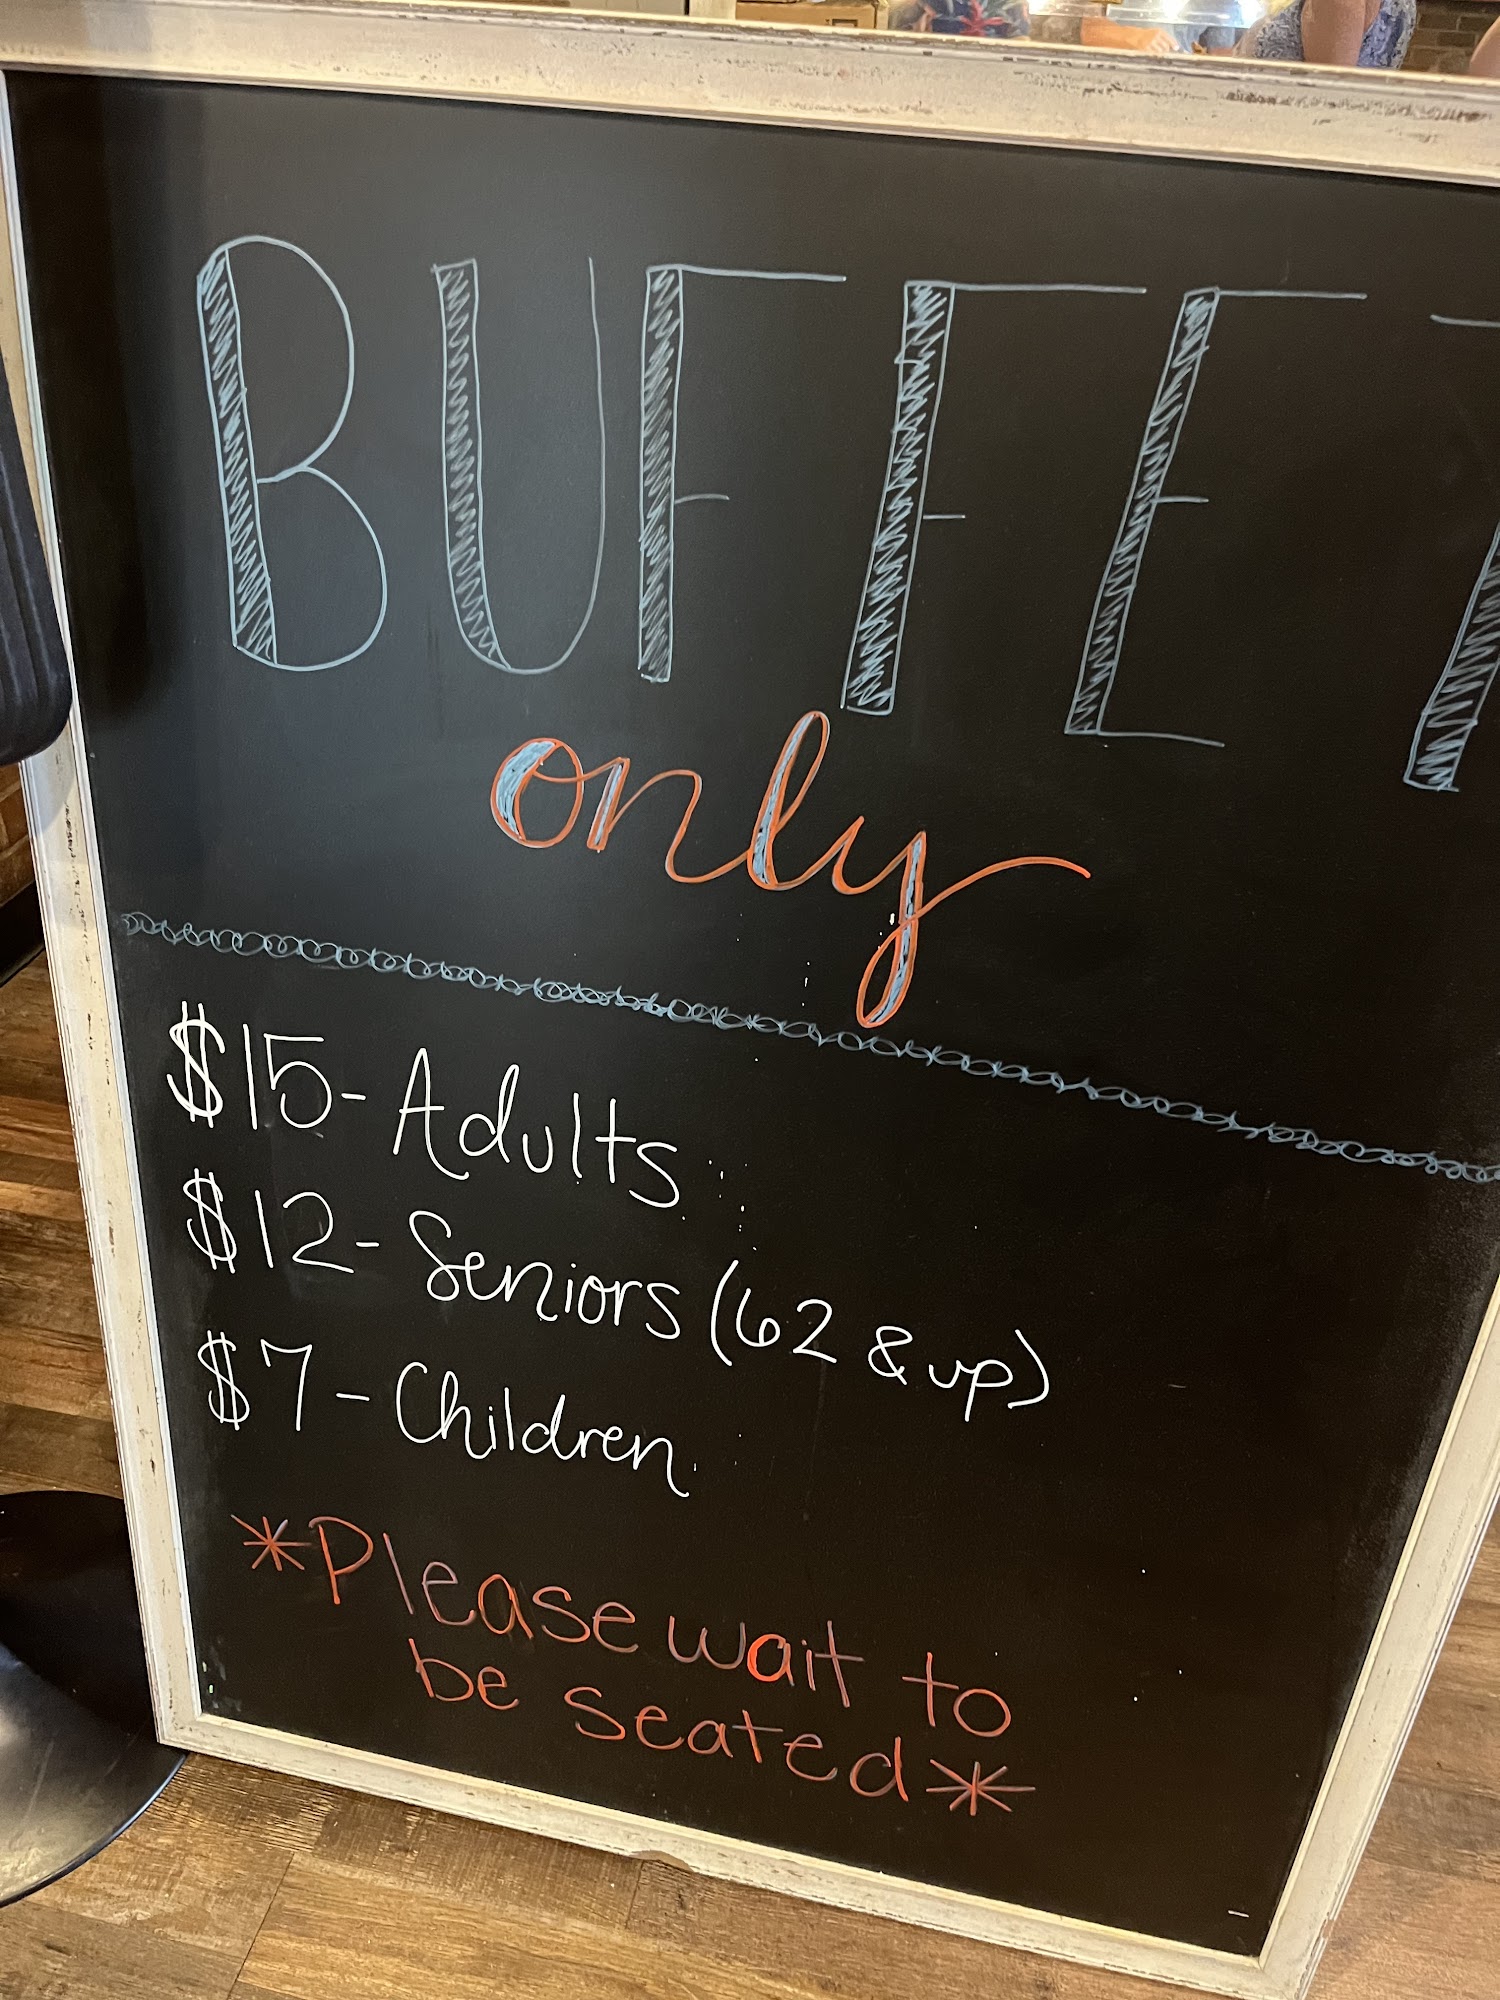 BUFFET
only
$15 - Adults
$12 - Seniors (62 & up)
$7 - Children
*Please wait to
be seated*